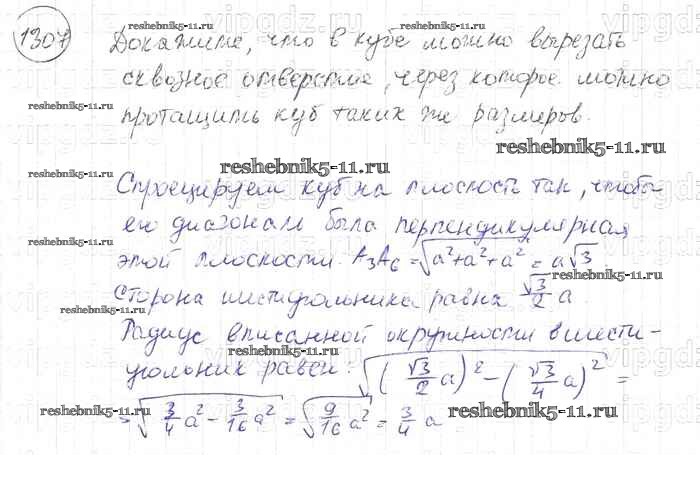 1307 Докажите, что в кубе можно вырезать
сквозное отверстие, через которое можно
протащить куб таких же размеров.
Спроецируем куб на плоскость так, чтобы
его диагональ была перпендикулярная
этой плоскости. A₃A₆ = √(a²+a²+a²) = a√3
Сторона шестиугольника равна √3/2 a.
Радиус вписанной окружности в шести-
угольник равен: √((√3/2 a)² - (√3/4 a)²) =
= √(3/4 a² - 3/16 a²) = √(9/16 a²) = 3/4 a
reshebnik5-11.ru
reshebnik5-11.ru
reshebnik5-11.ru
reshebnik5-11.ru
reshebnik5-11.ru
reshebnik5-11.ru
reshebnik5-11.ru
reshebnik5-11.ru
reshebnik5-11.ru
reshebnik5-11.ru
reshebnik5-11.ru